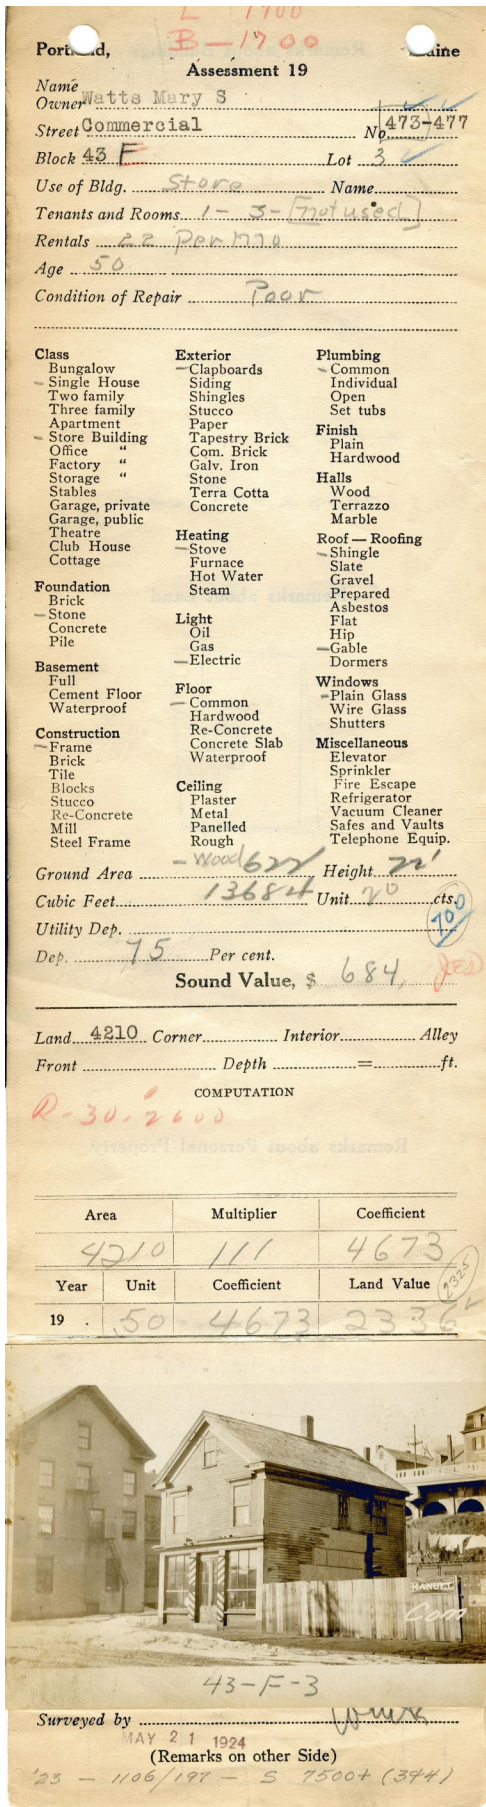 L 1700
B-1700
Portland, Maine
Assessment 19
Name
Owner Watts Mary S
Street Commercial No. 473-477
Block 43 F Lot 3
Use of Bldg. Store Name
Tenants and Rooms 1 - 3 - [not used]
Rentals 22 Per mo
Age 50
Condition of Repair Poor
Class
Bungalow
- Single House
Two family
Three family
Apartment
- Store Building
Office "
Factory "
Storage "
Stables
Garage, private
Garage, public
Theatre
Club House
Cottage
Foundation
Brick
- Stone
Concrete
Pile
Basement
Full
Cement Floor
Waterproof
Construction
- Frame
Brick
Tile
Blocks
Stucco
Re-Concrete
Mill
Steel Frame
Exterior
- Clapboards
Siding
Shingles
Stucco
Paper
Tapestry Brick
Com. Brick
Galv. Iron
Stone
Terra Cotta
Concrete
Heating
- Stove
Furnace
Hot Water
Steam
Light
Oil
Gas
- Electric
Floor
- Common
Hardwood
Re-Concrete
Concrete Slab
Waterproof
Ceiling
Plaster
Metal
Panelled
Rough
- Wood
Plumbing
- Common
Individual
Open
Set tubs
Finish
Plain
Hardwood
Halls
Wood
Terrazzo
Marble
Roof — Roofing
- Shingle
Slate
Gravel
Prepared
Asbestos
Flat
Hip
- Gable
Dormers
Windows
- Plain Glass
Wire Glass
Shutters
Miscellaneous
Elevator
Sprinkler
Fire Escape
Refrigerator
Vacuum Cleaner
Safes and Vaults
Telephone Equip.
Ground Area 622 Height 22'
Cubic Feet 13684 Unit 20 cts.
Utility Dep. 700
Dep. 75 Per cent.
Sound Value, $ 684. JED
Land 4210 Corner Interior Alley
Front Depth = ft.
COMPUTATION
R-30-2600
Area Multiplier Coefficient
4210 111 4673
Year Unit Coefficient Land Value 2325
19 . .50 4673 2336
Com
43-F-3
Surveyed by
MAY 21 1924
(Remarks on other Side)
'23 - 1106/197 - S 7500+ (344)